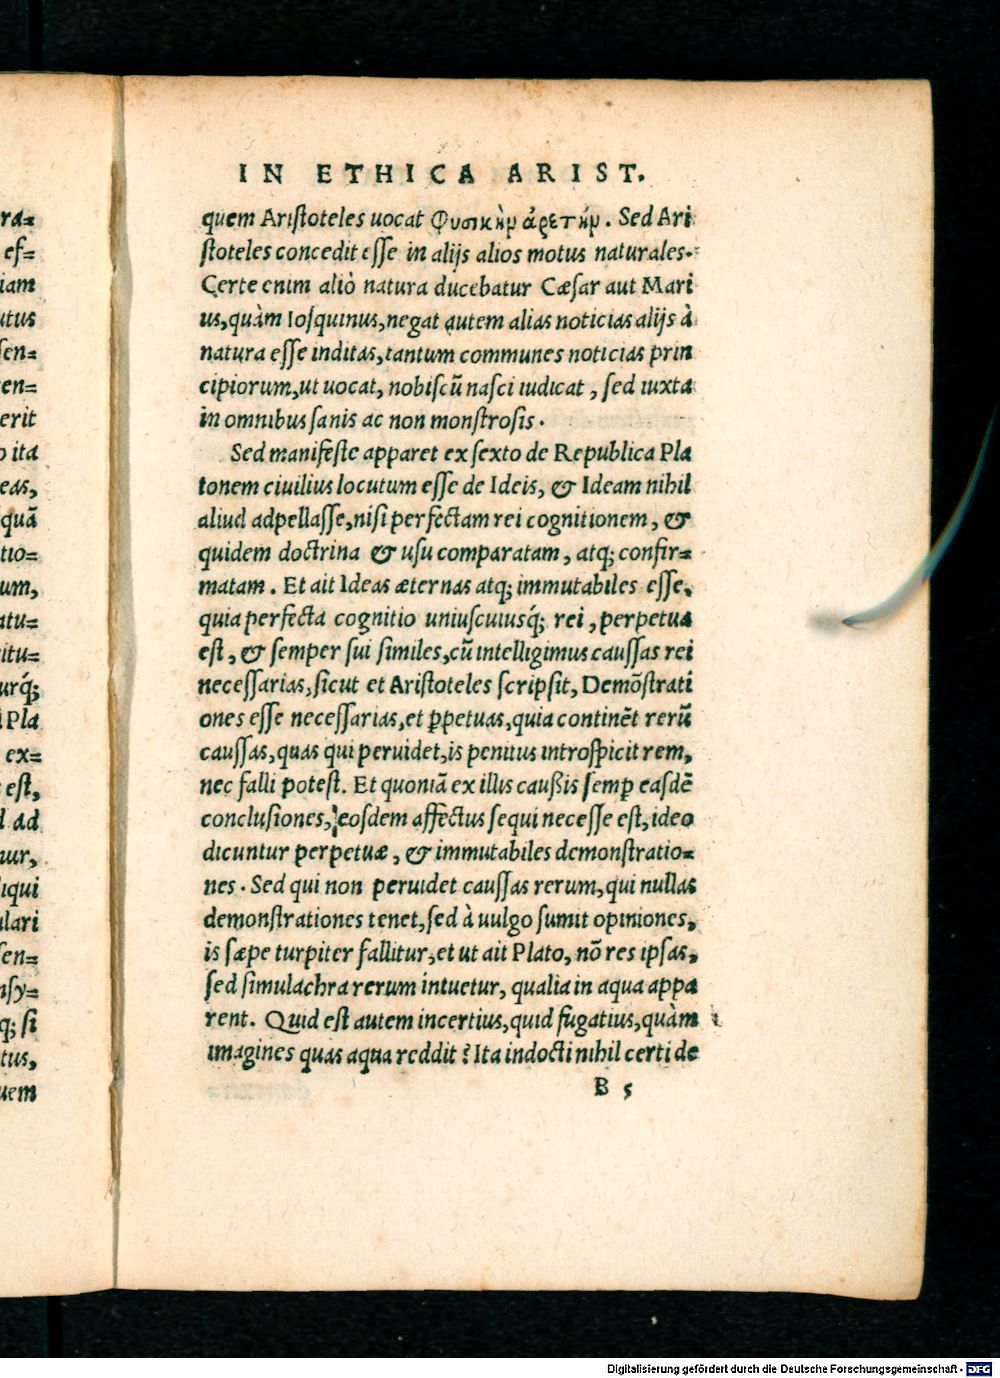 IN ETHICA ARIST.
quem Ariſtoteles uocat φυσικὴν ἀρετήν. Sed Ari
ſtoteles concedit eſſe in alijs alios motus naturales.
Certe enim aliò natura ducebatur Cæſar aut Mari
us, quàm Ioſquinus, negat autem alias noticias alijs à
natura eſſe inditas, tantum communes noticias prin
cipiorum, ut uocat, nobiſcũ naſci iudicat, ſed iuxta
in omnibus ſanis ac non monſtroſis.
Sed manifeſte apparet ex ſexto de Republica Pla
tonem ciuilius locutum eſſe de Ideis, & Ideam nihil
aliud adpellaſſe, niſi perfectam rei cognitionem, &
quidem doctrina & uſu comparatam, atq; confir=
matam. Et ait Ideas æternas atq; immutabiles eſſe,
quia perfecta cognitio uniuſcuiusq́; rei, perpetua
eſt, & ſemper ſui ſimiles, cũ intelligimus cauſſas rei
neceſſarias, ſicut et Ariſtoteles ſcripſit, Demõſtrati
ones eſſe neceſſarias, et ꝑpetuas, quia continẽt rerũ
cauſſas, quas qui peruidet, is penitus introſpicit rem,
nec falli poteſt. Et quoniã ex illis caußis ſemꝑ eaſdẽ
concluſiones, eoſdem affectus ſequi neceſſe eſt, ideo
dicuntur perpetuæ, & immutabiles demonſtratio=
nes. Sed qui non peruidet cauſſas rerum, qui nullas
demonſtrationes tenet, ſed à uulgo ſumit opiniones,
is ſæpe turpiter fallitur, et ut ait Plato, nõ res ipſas,
ſed ſimulachra rerum intuetur, qualia in aqua appa
rent. Quid eſt autem incertius, quid fugatius, quàm
imagines quas aqua reddit? Ita indocti nihil certi de
B 5
ra=
ef=
iam
utus
ſen=
en=
erit
ita
eas,
quã
tio=
um,
atu=
itu=
urq́;
Pla
ex=
eſt,
ad
uur,
liqui
ulari
ſen=
nſy=
q; ſi
tus,
uem
Digitalisierung gefördert durch die Deutsche Forschungsgemeinschaft - DFG